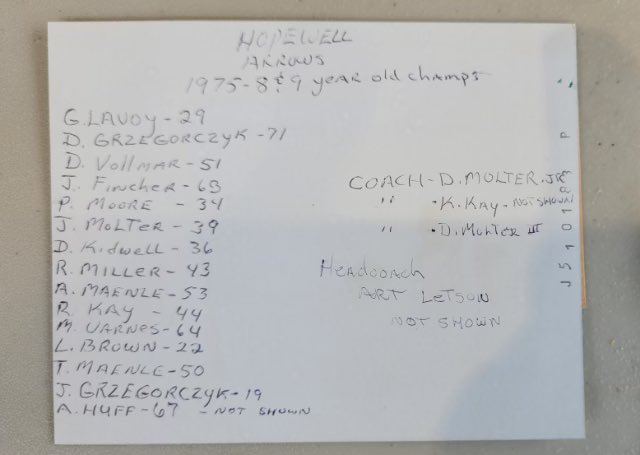 HOPEWELL
ARROWS
1975-8&9 year old champs
G. LAVOY - 29
D. GRZEGORCZYK - 71
D. VOLLMAR - 51
J. FINCHER - 63
P. MOORE - 34
J. MOLTER - 39
D. KIDWELL - 36
R. MILLER - 43
A. MAENLE - 53
R. KAY - 44
M. VARNES - 64
L. BROWN - 22
T. MAENLE - 50
J. GRZEGORCZYK - 19
A. HUFF - 67 - NOT SHOWN
COACH - D. MOLTER JR
" • K. KAY - NOT SHOWN
" • D. MOLTER III
Headcoach
ART LETSON
NOT SHOWN